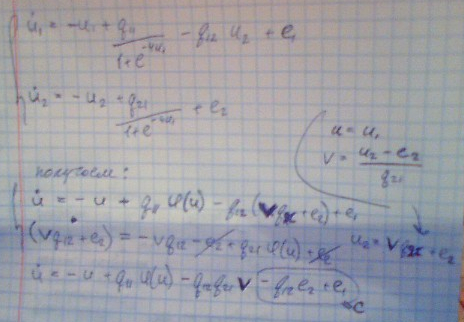 u̇₁ = -u₁ + q₁₁ / (1+e^(-4u₁)) - q₁₂ u₂ + e₁
u̇₂ = -u₂ + q₂₁ / (1+e^(-4u₁)) + e₂
u = u₁
v = (u₂ - e₂) / q₂₁
получаем:
u̇ = -u + q₁₁ φ(u) - q₁₂(v q₂₁ + e₂) + e₁
(v q₁₂ + e₂)˙ = -v q₁₂ - e₂ + q₂₁ φ(u) + e₂
u₂ = v q₂₁ + e₂
u̇ = -u + q₁₁ φ(u) - q₁₂ q₂₁ v - q₁₂ e₂ + e₁
c